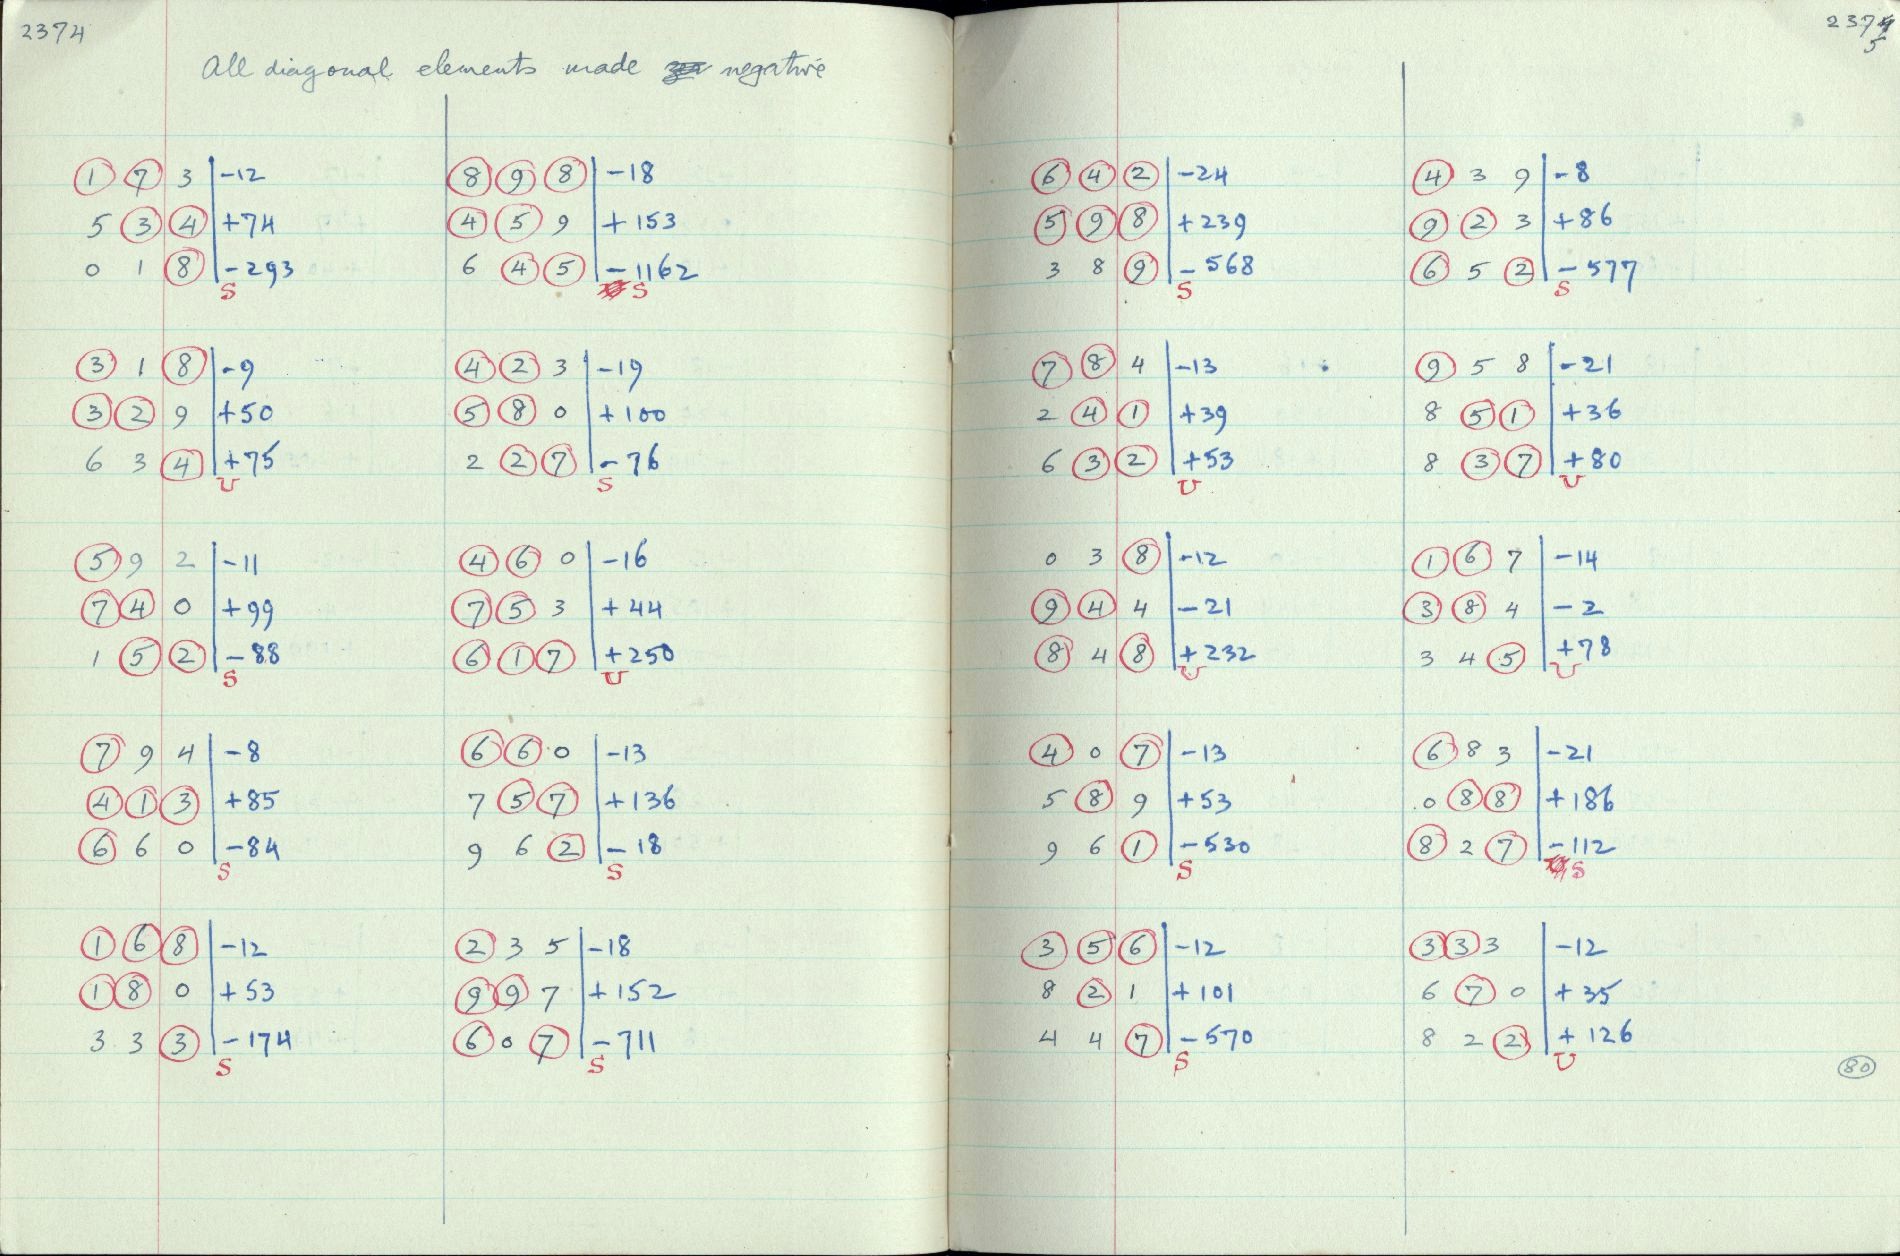 2374
All diagonal elements made negative
1 7 3 | -12
5 3 4 | +74
0 1 8 | -293
S
3 1 8 | -9
3 2 9 | +50
6 3 4 | +75
U
5 9 2 | -11
7 4 0 | +99
1 5 2 | -88
S
7 9 4 | -8
4 1 3 | +85
6 6 0 | -84
S
1 6 8 | -12
1 8 0 | +53
3 3 3 | -174
S
8 9 8 | -18
4 5 9 | +153
6 4 5 | -1162
S
4 2 3 | -19
5 8 0 | +100
2 2 7 | -76
S
4 6 0 | -16
7 5 3 | +44
6 1 7 | +250
U
6 6 0 | -13
7 5 7 | +136
9 6 2 | -18
S
2 3 5 | -18
9 9 7 | +152
6 0 7 | -711
S
2375
6 4 2 | -24
5 9 8 | +239
3 8 9 | -568
S
7 8 4 | -13
2 4 1 | +39
6 3 2 | +53
U
0 3 8 | -12
9 4 4 | -21
8 4 8 | +232
U
4 0 7 | -13
5 8 9 | +53
9 6 1 | -530
S
3 5 6 | -12
8 2 1 | +101
4 4 7 | -570
S
4 3 9 | -8
9 2 3 | +86
6 5 2 | -577
S
9 5 8 | -21
8 5 1 | +36
8 3 7 | +80
U
1 6 7 | -14
3 8 4 | -2
3 4 5 | +78
U
6 8 3 | -21
0 8 8 | +186
8 2 7 | -112
S
3 3 3 | -12
6 7 0 | +35
8 2 2 | +126
U
80